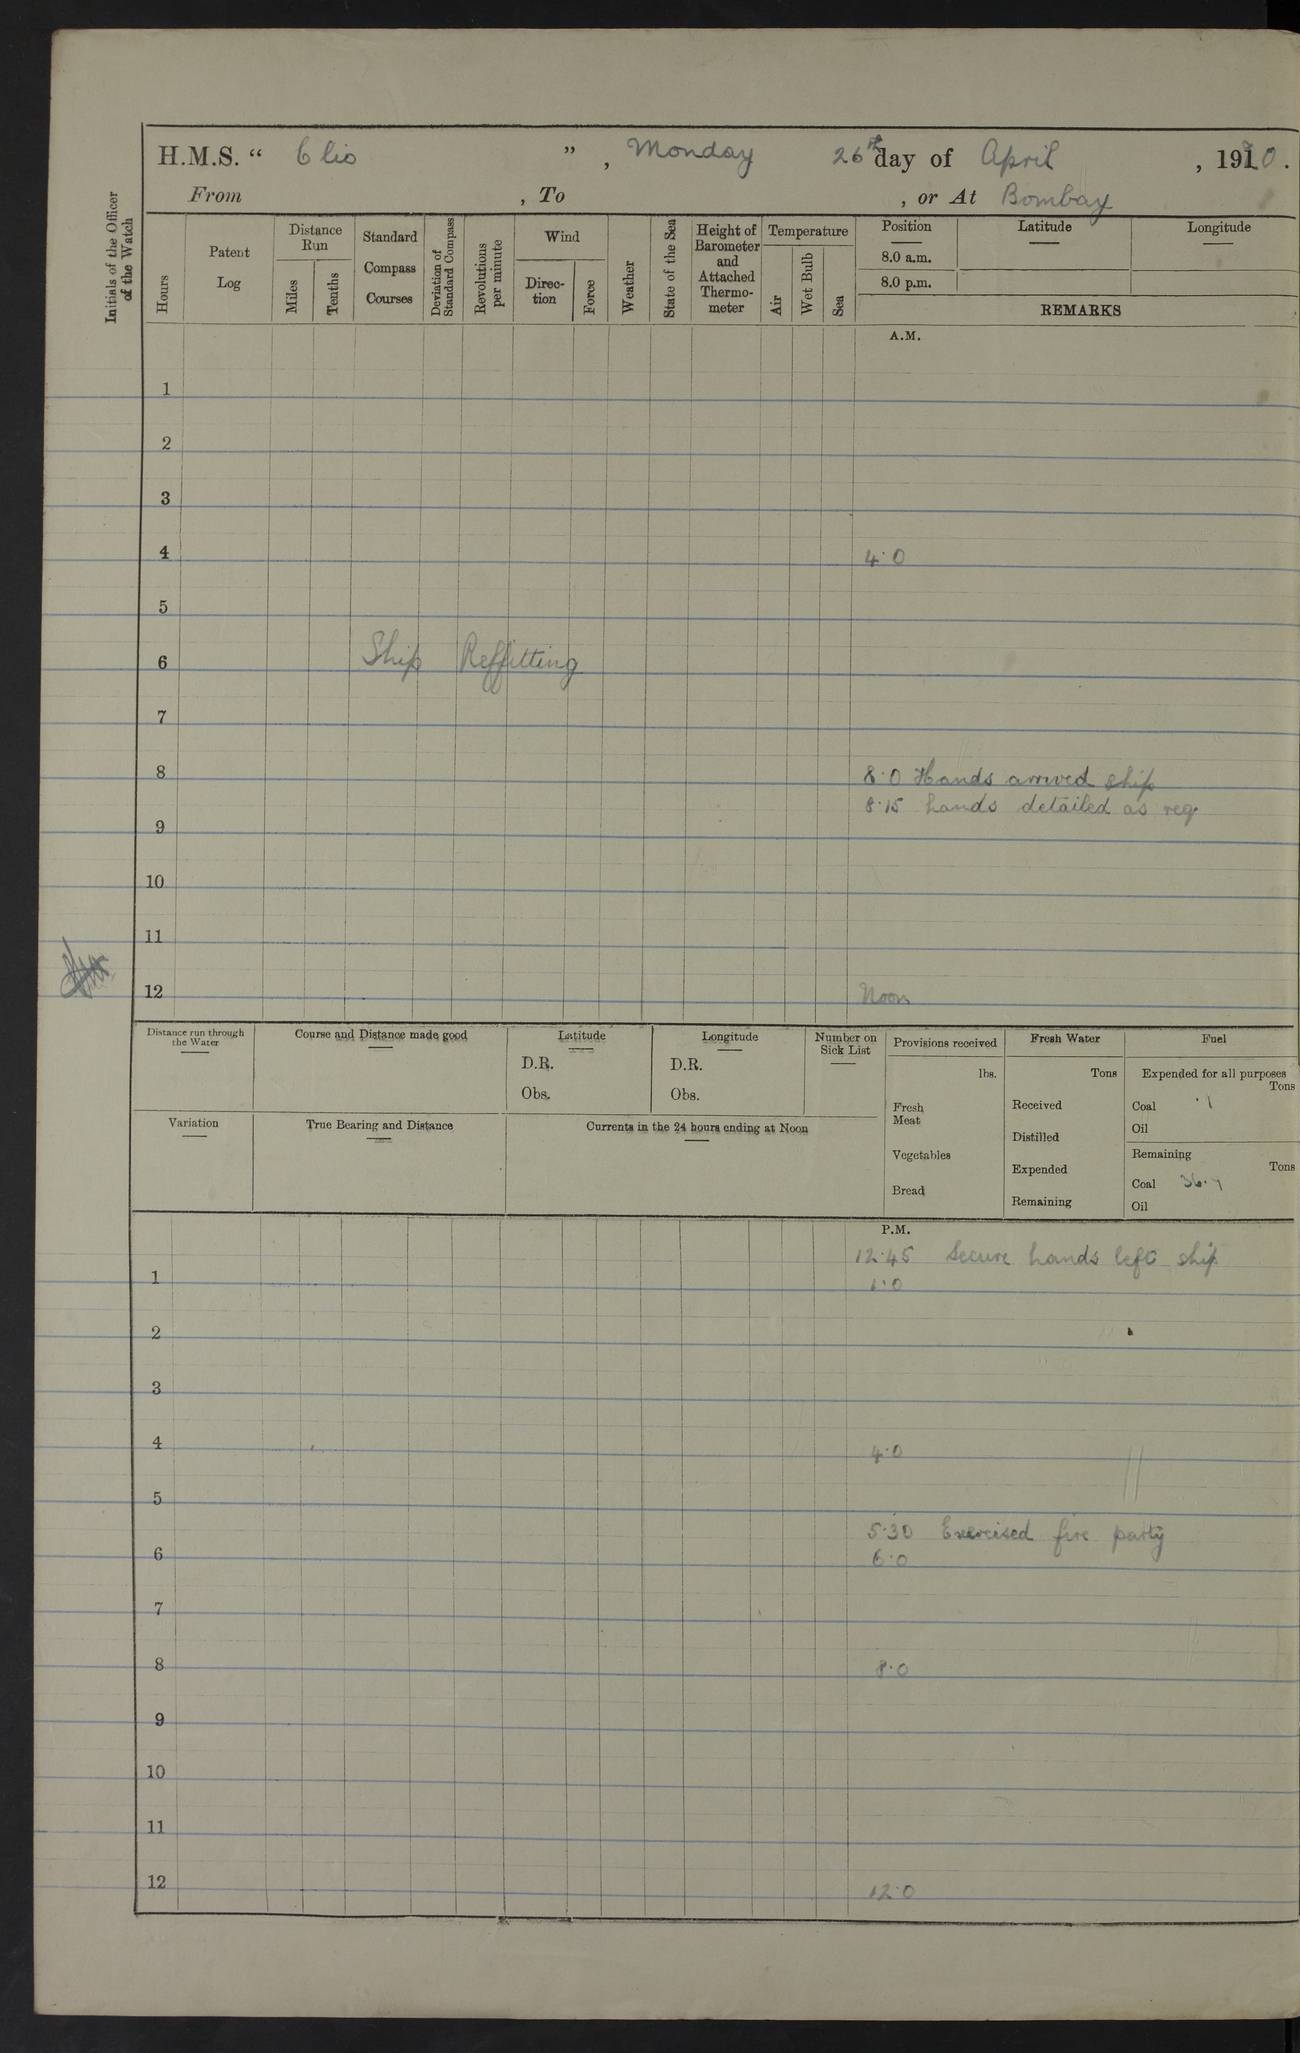 H.M.S. “ Clio ” , Monday 26th day of April , 1920.
From , To , or At Bombay
Initials of the Officer of the Watch
Hours
Patent Log
Distance Run
Miles
Tenths
Standard Compass Courses
Deviation of Standard Compass
Revolutions per minute
Wind
Direc-tion
Force
Weather
State of the Sea
Height of Barometer and Attached Thermo-meter
Temperature
Air
Wet Bulb
Sea
Position Latitude Longitude
8.0 a.m.
8.0 p.m.
REMARKS
A.M.
1
2
3
4 4.0
5
6 Ship Reffitting
7
8 8.0 Hands arrived ship
8.15 hands detailed as req.
9
10
11
12 Noon
Distance run through the Water
Course and Distance made good
Latitude
D.R.
Obs.
Longitude
D.R.
Obs.
Number on Sick List
Variation
True Bearing and Distance
Currents in the 24 hours ending at Noon
Provisions received
lbs.
Fresh Meat
Vegetables
Bread
Fresh Water
Tons
Received
Distilled
Expended
Remaining
Fuel
Expended for all purposes
Tons
Coal .1
Oil
Remaining
Tons
Coal
Oil
P.M.
12.45 Secure hands left ship
1 1.0
2
3
4 4.0
5
5.30 Exercised fire party
6 6.0
7
8 8.0
9
10
11
12 12.0